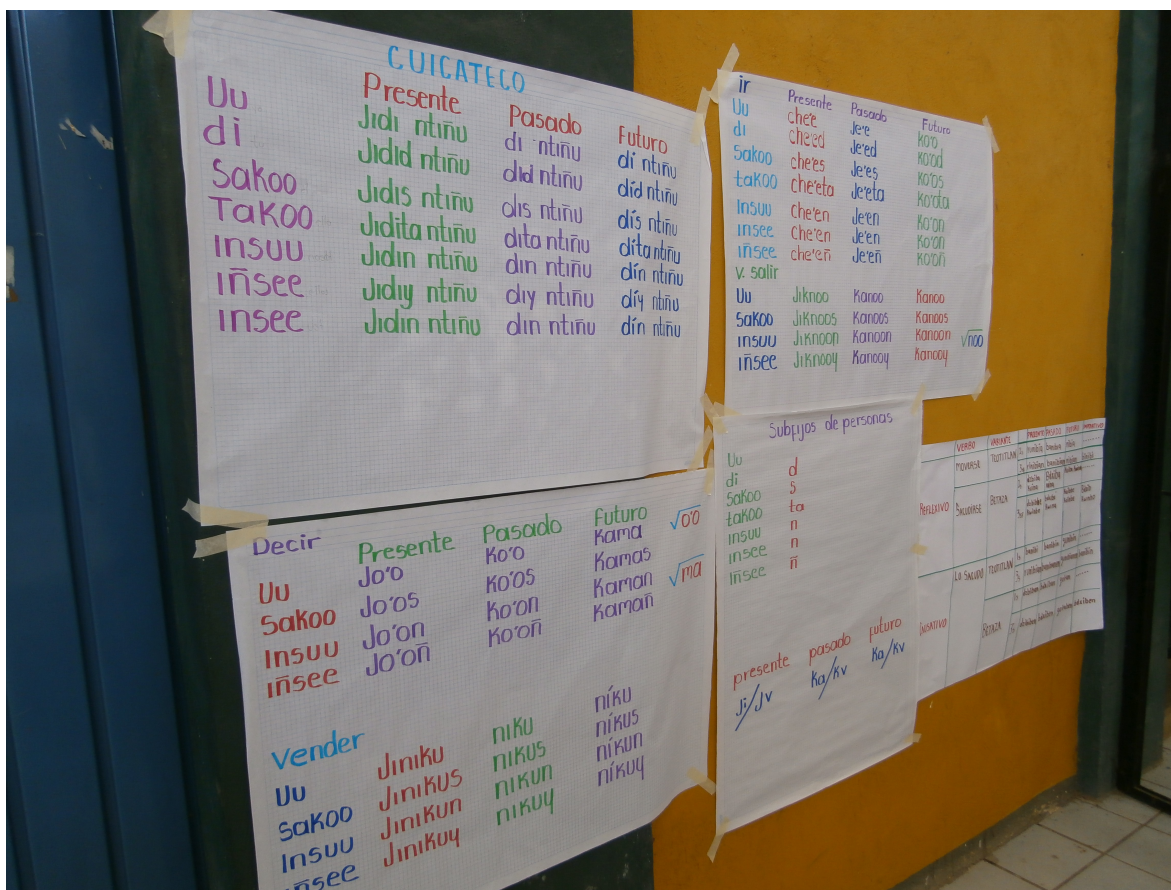 CUICATECO
Presente Pasado Futuro
Uu Jidi ntiñu di ntiñu dí ntiñu
di Jidid ntiñu did ntiñu díd ntiñu
Sakoo Jidis ntiñu dis ntiñu dís ntiñu
Takoo Jidita ntiñu dita ntiñu díta ntiñu
insuu Jidin ntiñu din ntiñu dín ntiñu
iñsee Jidiy ntiñu diy ntiñu díy ntiñu
insee Jidin ntiñu din ntiñu dín ntiñu
ir
Presente Pasado Futuro
Uu che'e Je'e ko'o
di che'ed Je'ed ko'od
Sakoo che'es Je'es ko'os
takoo che'eta Je'eta ko'ota
Insuu che'en Je'en ko'on
insee che'en Je'en ko'on
iñsee che'eñ Je'eñ ko'oñ
v. salir
Uu Jiknoo Kanoo Kanoo
Sakoo Jiknoos Kanoos Kanoos
insuu Jiknoon Kanoon Kanoon √noo
iñsee Jiknooy Kanooy Kanooy
Decir
Presente Pasado Futuro √o'o
Uu Jo'o Ko'o Kama √ma
Sakoo Jo'os Ko'os Kamas
Insuu Jo'on Ko'on Kaman
iñsee Jo'oñ Ko'oñ Kamañ
Vender
Uu Jiniku niku níku
Sakoo Jinikus nikus níkus
Insuu Jinikun nikun níkun
iñsee Jinikuy nikuy níkuy
Subfijos de personas
Uu
di d
Sakoo s
takoo ta
insuu n
insee n
iñsee ñ
presente pasado futuro
Ji/Jv Ka/Kv Ka/Kv
VERBO VARIANTE PRESENTE PASADO FUTURO
REFLEXIVO MOVERSE TEOTITLAN
SALUDARSE BETAZA
LO SALUDO TEOTITLAN
BETAZA